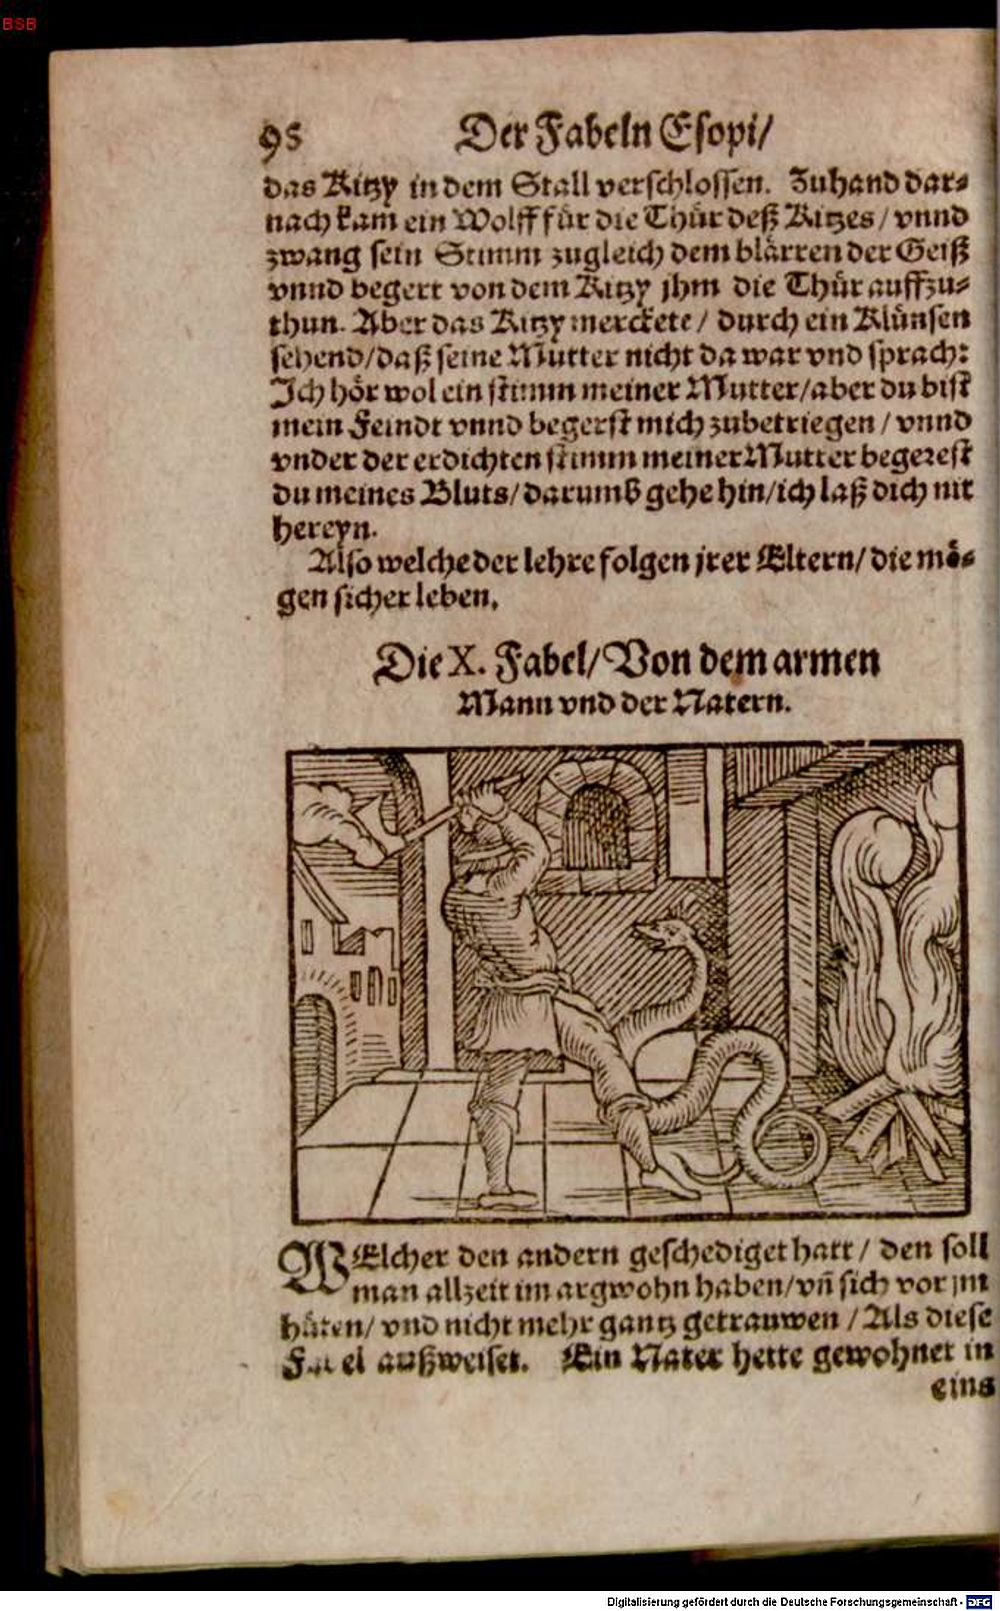 BSB
95 Der Fabeln Esopi/
das Kitzy in dem Stall verschlossen. Zuhand dar⸗
nach kam ein Wolff für die Thür deß Kitzes/ vnnd
zwang sein Stimm zugleich dem blärren der Geiß
vnnd begert von dem Kitzy jhm die Thür auffzu⸗
thun. Aber das Kitzy merckete/ durch ein Klünsen
sehend/daß seine Mutter nicht da war vnd sprach:
Ich hör wol ein stimm meiner Mutter/aber du bist
mein Feindt vnnd begerst mich zubetriegen/ vnnd
vnder der erdichten stimm meiner Mutter begerest
du meines Bluts/darumb gehe hin/ich laß dich nit
hereyn.
Also welche der lehre folgen jrer Eltern/die mö⸗
gen sicher leben.
Die X. Fabel/Von dem armen
Mann vnd der Natern.
WElcher den andern geschediget hatt/ den soll
man allzeit im argwohn haben/vñ sich vor jm
hüten/ vnd nicht mehr gantz getrauwen/Als diese
außweiset. Ein Nater hette gewohnet in
eins
Digitalisierung gefördert durch die Deutsche Forschungsgemeinschaft - DFG